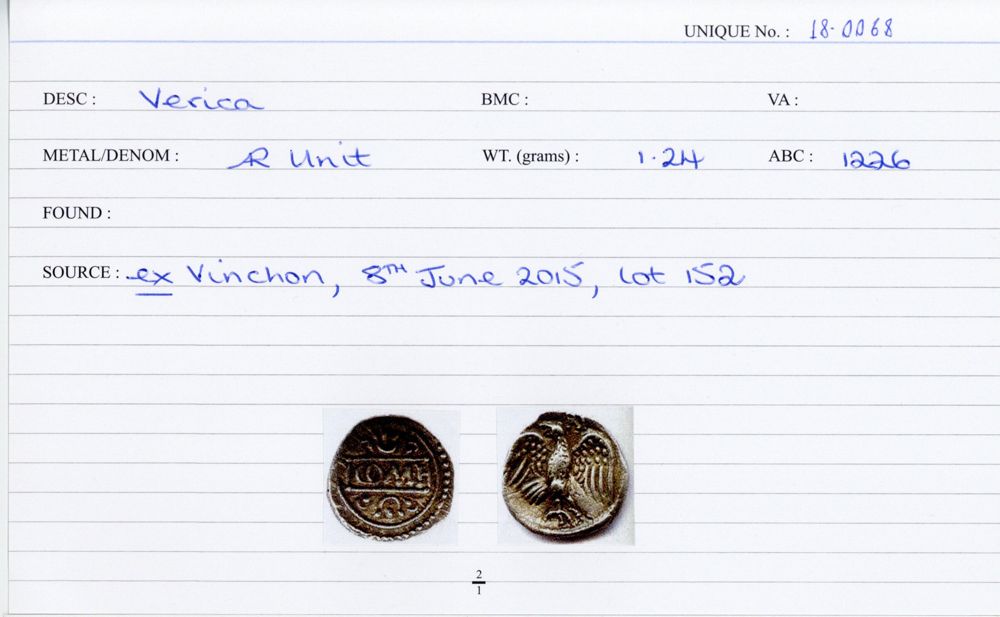 UNIQUE No. : 18-0068
DESC : Verica BMC : VA :
METAL/DENOM : AR Unit WT. (grams) : 1.24 ABC : 1226
FOUND :
SOURCE : ex Vinchon, 8TH June 2015, lot 152
COMF
2
1